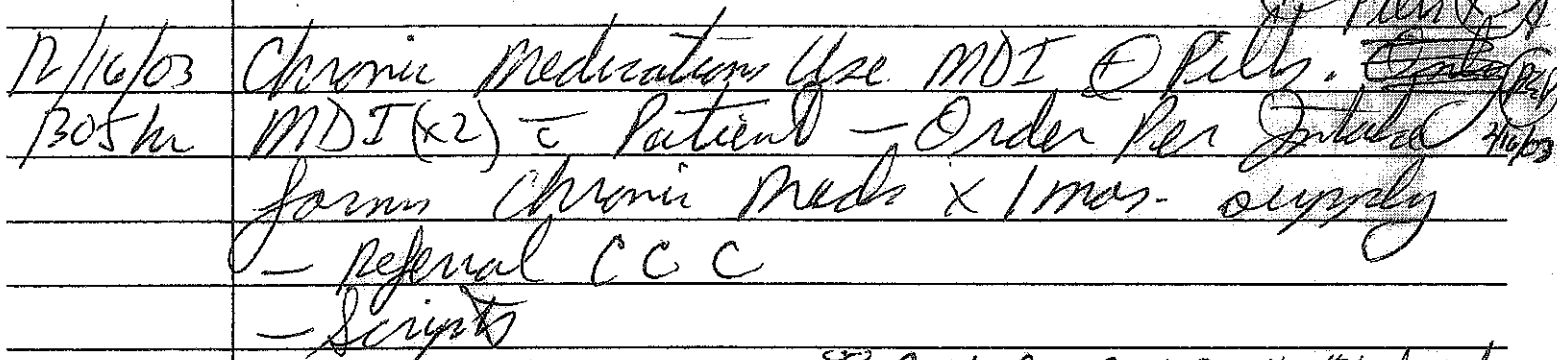 12/16/03 Chronic Medications Use MDI ⊕ Pills.
1305hr MDI (x2) c̄ Patient — Order Per Intake
forms Chronic Meds x 1 mos. supply
— Referral C C C
— Scripts